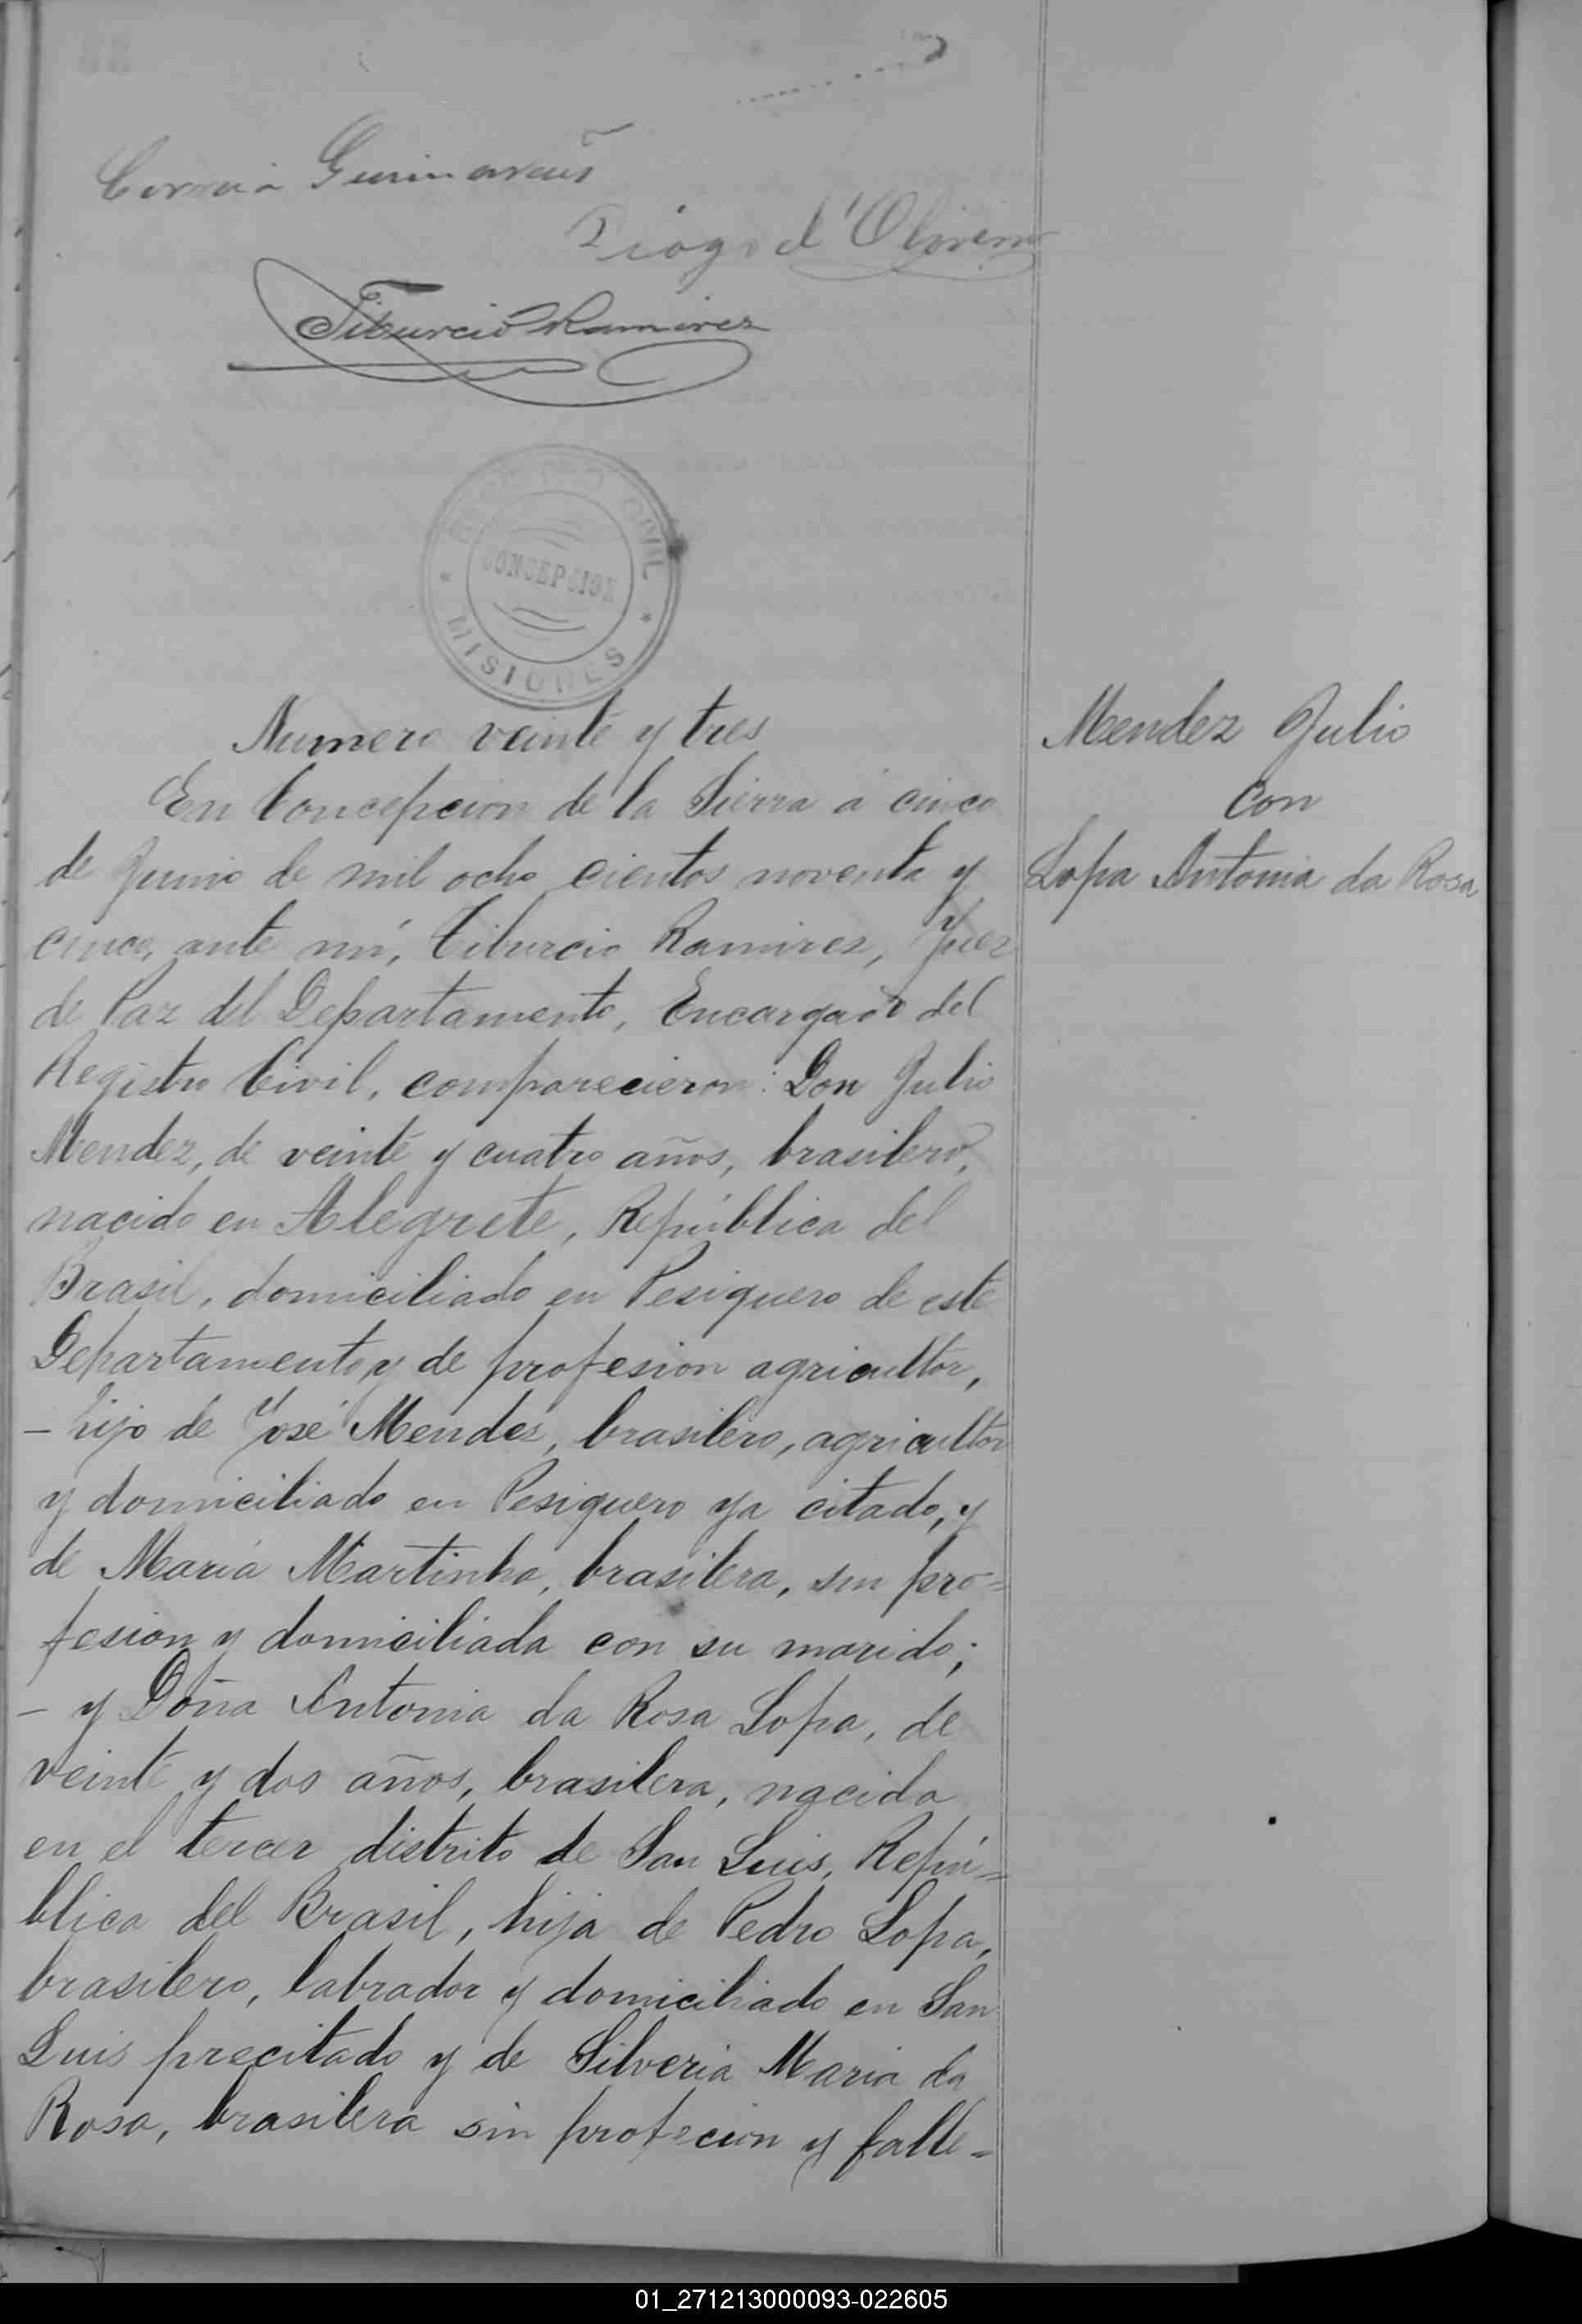 Correia Guimarães
Diogo d'Oliveira
Tiburcio Ramirez
REGISTRO CIVIL
CONCEPCION
* MISIONES *
Numero veinte y tres
Mendez Julio
con
Lopa Antonia da Rosa
En Concepcion de la Sierra á cinco
de Junio de mil ocho cientos noventa y
cinco, ante mí, Tiburcio Ramirez, Juez
de Paz del Departamento, Encargado del
Registro Civil, comparecieron: Don Julio
Mendez, de veinte y cuatro años, brasilero,
nacido en Alegrete, República del
Brasil, domiciliado en Pesiguero de este
Departamento, y de profesion agricultor,
- hijo de José Mendez, brasilero, agricultor
y domiciliado en Pesiguero ya citado, y
de María Martinha, brasilera, sin pro=
fesion y domiciliada con su marido;
- y Doña Antonia da Rosa Lopa, de
veinte y dos años, brasilera, nacida
en el tercer distrito de San Luis, Repú=
blica del Brasil, hija de Pedro Lopa,
brasilero, labrador y domiciliado en San
Luis precitado y de Silveria Maria da
Rosa, brasilera sin profecion y falle=
01_271213000093-022605